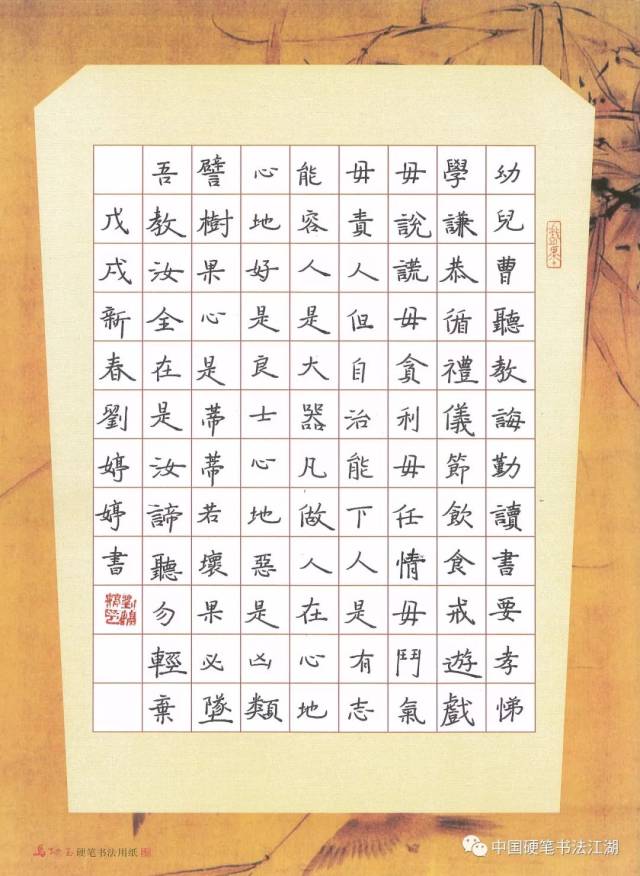 幼兒曹聽教誨勤讀書要孝悌
學謙恭循禮儀節飲食戒遊戲
毋說謊毋貪利毋任情毋鬥氣
毋責人但自治能下人是有志
能容人是大器凡做人在心地
心地好是良士心地惡是凶類
譬樹果心是蒂蒂若壞果必墜
吾教汝全在是汝諦聽勿輕棄
戊戌新春劉婷婷書
硬笔书法用纸
中国硬笔书法江湖